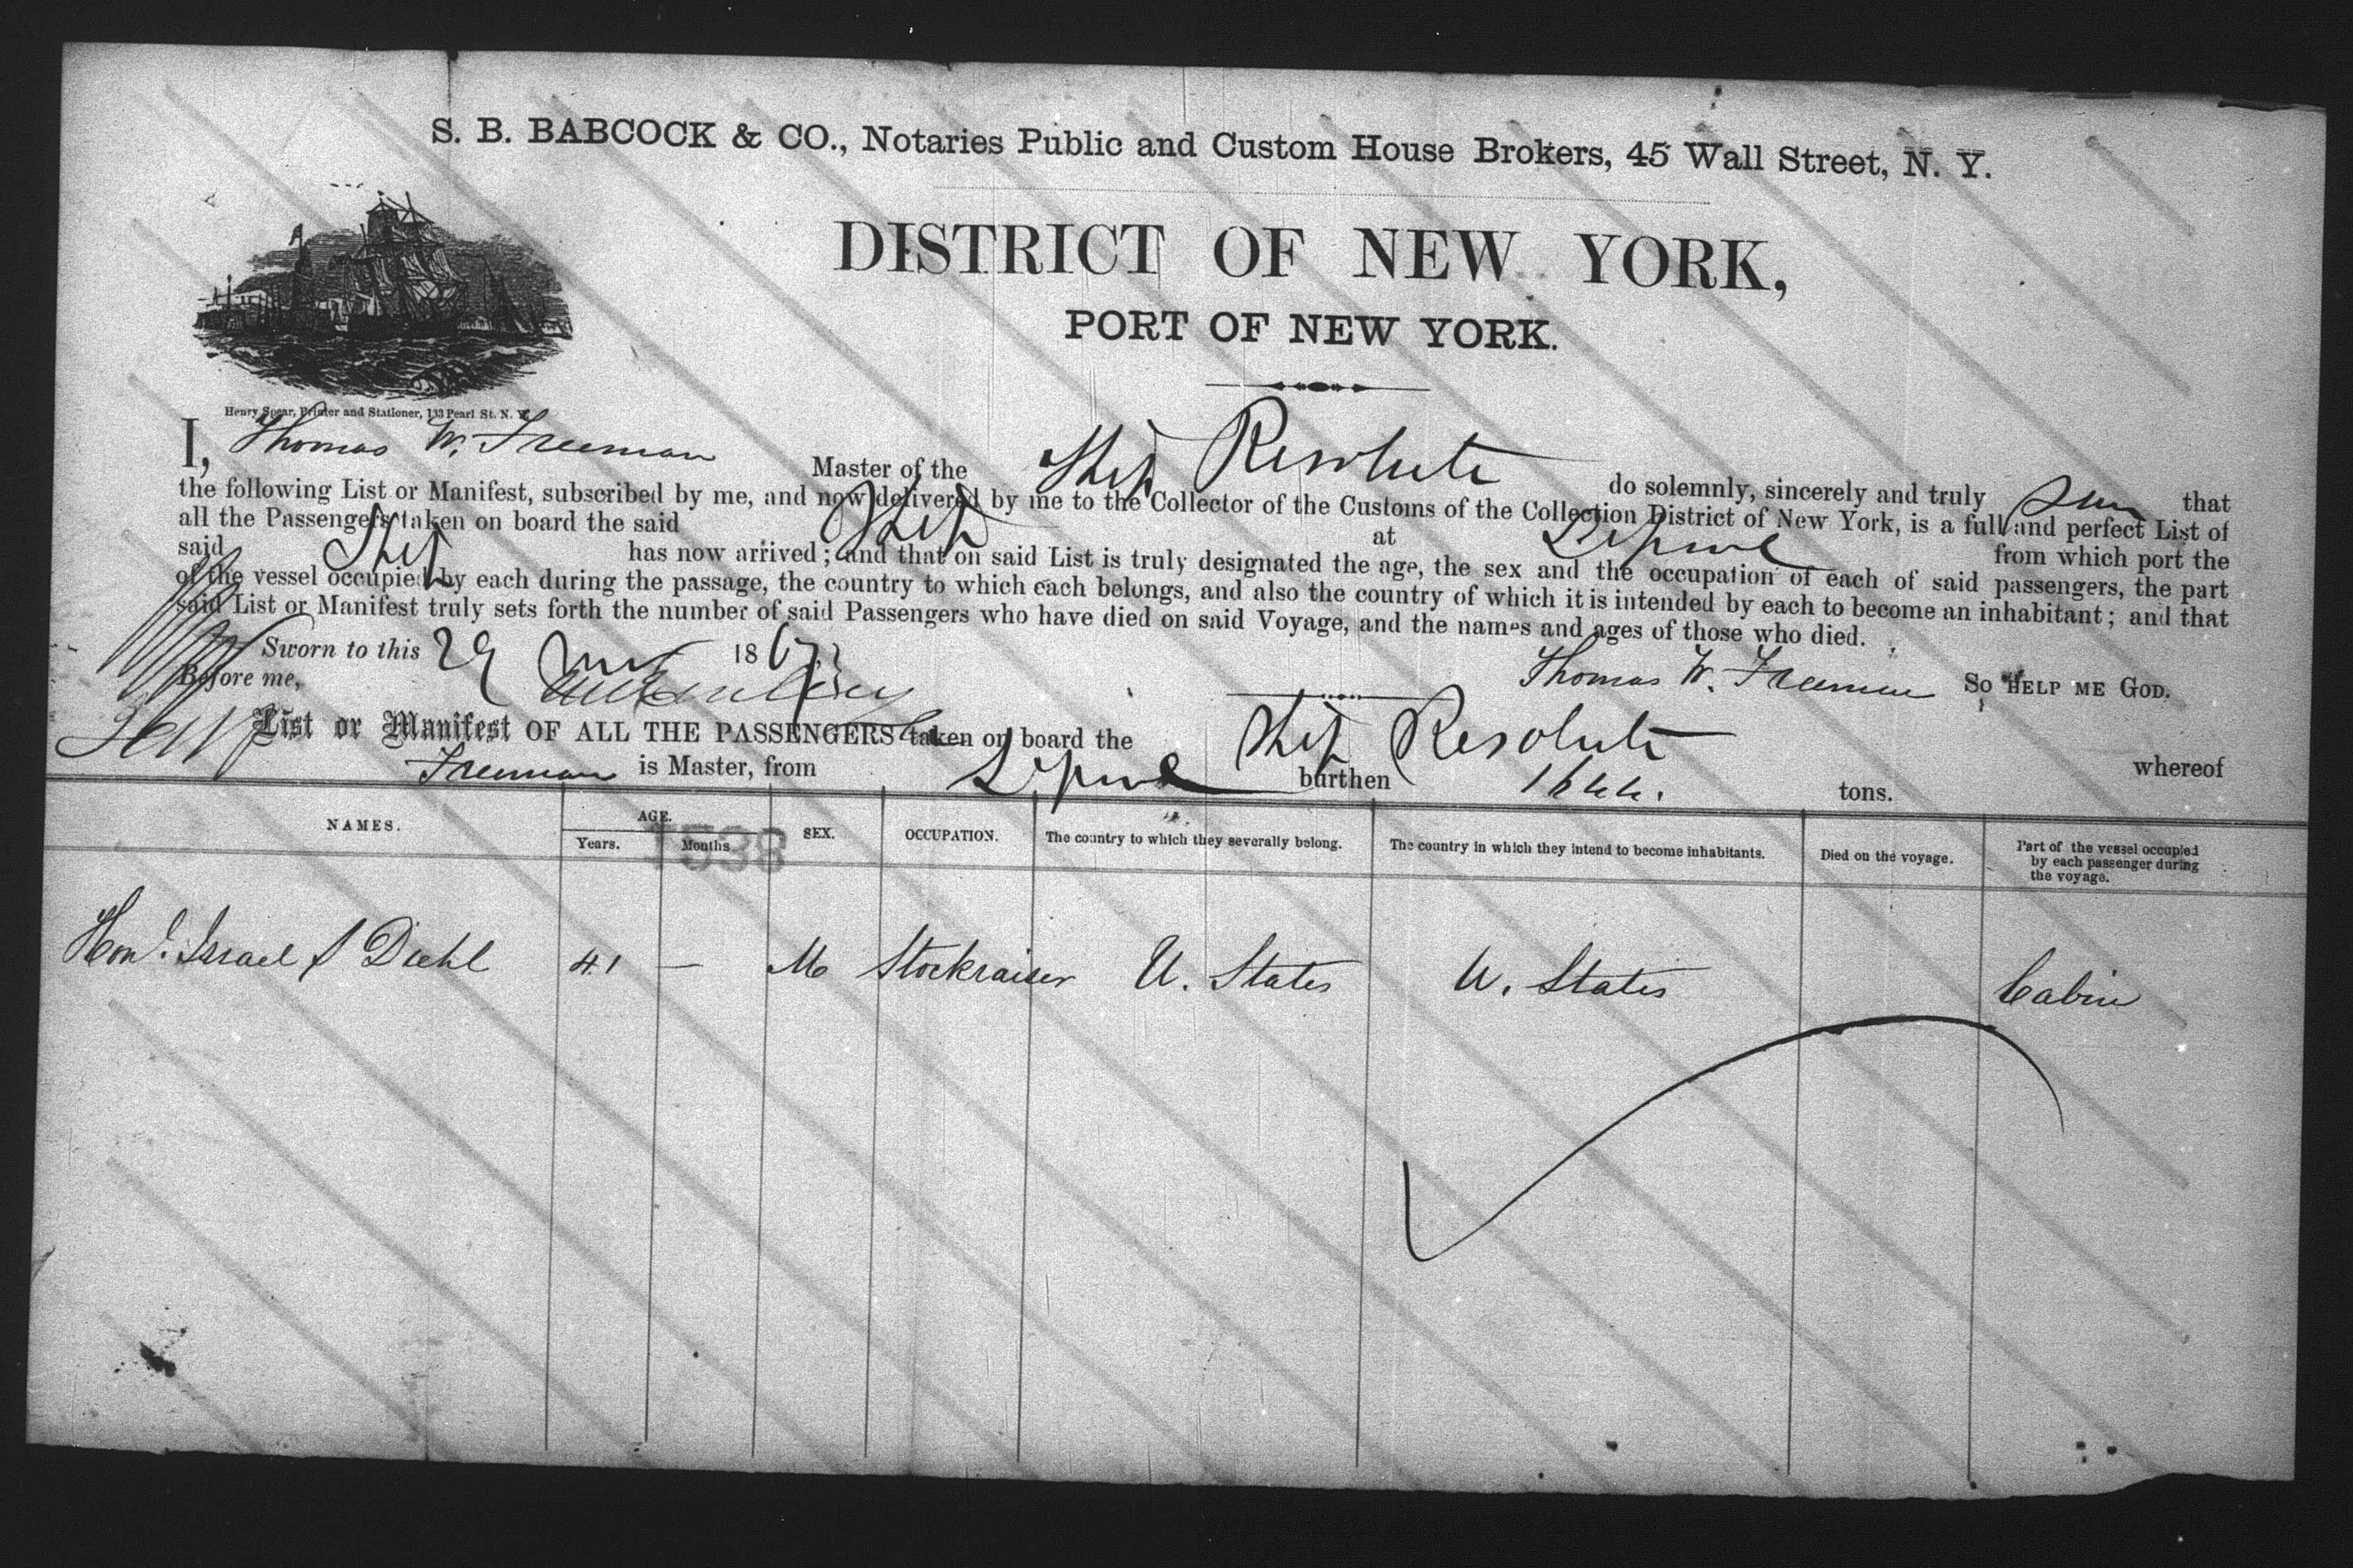 S. B. BABCOCK & CO., Notaries Public and Custom House Brokers, 45 Wall Street, N. Y.
DISTRICT OF NEW YORK,
PORT OF NEW YORK.
Henry Spear, Printer and Stationer, 133 Pearl St. N. Y.
I, Thomas W. Freeman Master of the Ship Resolute do solemnly, sincerely and truly that
the following List or Manifest, subscribed by me, and now delivered by me to the Collector of the Customs of the Collection District of New York, is a full and perfect List of
all the Passengers taken on board the said Ship at Lipool from which port the
said Ship has now arrived; and that on said List is truly designated the age, the sex and the occupation of each of said passengers, the part
of the vessel occupied by each during the passage, the country to which each belongs, and also the country of which it is intended by each to become an inhabitant; and that
said List or Manifest truly sets forth the number of said Passengers who have died on said Voyage, and the names and ages of those who died.
Sworn to this 29 1867
Thomas W. Freeman SO HELP ME GOD.
Before me,
List or Manifest OF ALL THE PASSENGERS taken on board the Ship Resolute whereof
Freeman is Master, from Lipool burthen tons.
NAMES. AGE. Years. Months SEX. OCCUPATION. The country to which they severally belong. The country in which they intend to become inhabitants. Died on the voyage. Part of the vessel occupied by each passenger during the voyage.
1538
Hon. Israel S Diehl 41 — M Stockraiser U. States U. States Cabin